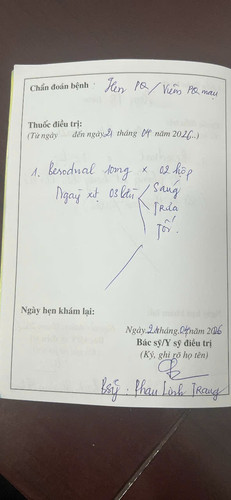 Chẩn đoán bệnh Hen PQ / Viêm PQ mạn
Thuốc điều trị:
(Từ ngày đến ngày 21 tháng 04 năm 2026..)
1. Berodual 10mg x 02 hộp
Ngày xịt 03 lần Sáng
Trưa
Tối.
Ngày hẹn khám lại:
Ngày 21 tháng 04 năm 2026
Bác sỹ/Y sỹ điều trị
(Ký, ghi rõ họ tên)
Bsỹ: Phan Linh Trang